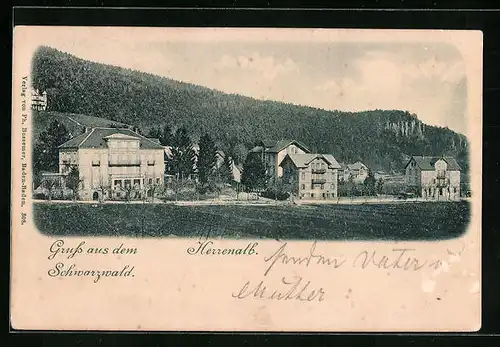 Verlag von Ph. Bossemer, Baden-Baden.
Gruß aus dem
Schwarzwald.
Herrenalb.
senden Vater u
Mutter